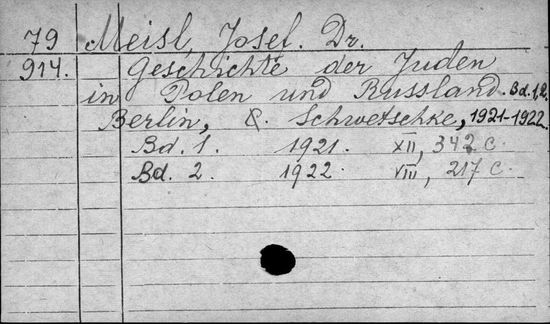 79 Meisl, Josef. Dr.
914. Geschichte der Juden
in Polen und Russland. Bd. 1,2.
Berlin, C. Schwetschke, 1921-1922.
Bd. 1. 1921. XII, 342 c.
Bd. 2. 1922. VIII, 217 c.